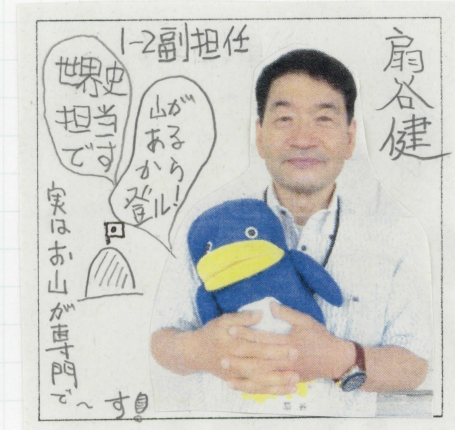 1-2副担任
扇谷健
世界史
担当
です
山が
あるから
登ル!
実はお山が専門で〜す!